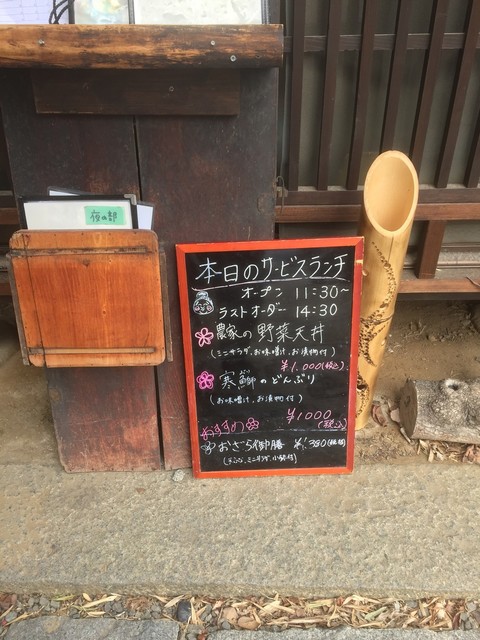 夜の部
本日のサービスランチ
オープン 11:30~
ラストオーダー 14:30
農家の野菜天丼
(ミニサラダ、お味噌汁、お漬物付)
¥1.000(税込)
寒鰤のどんぶり
(お味噌汁、お漬物付)
¥1000
(税込)
おすすめ
おざら御膳 ¥1,380(税込)